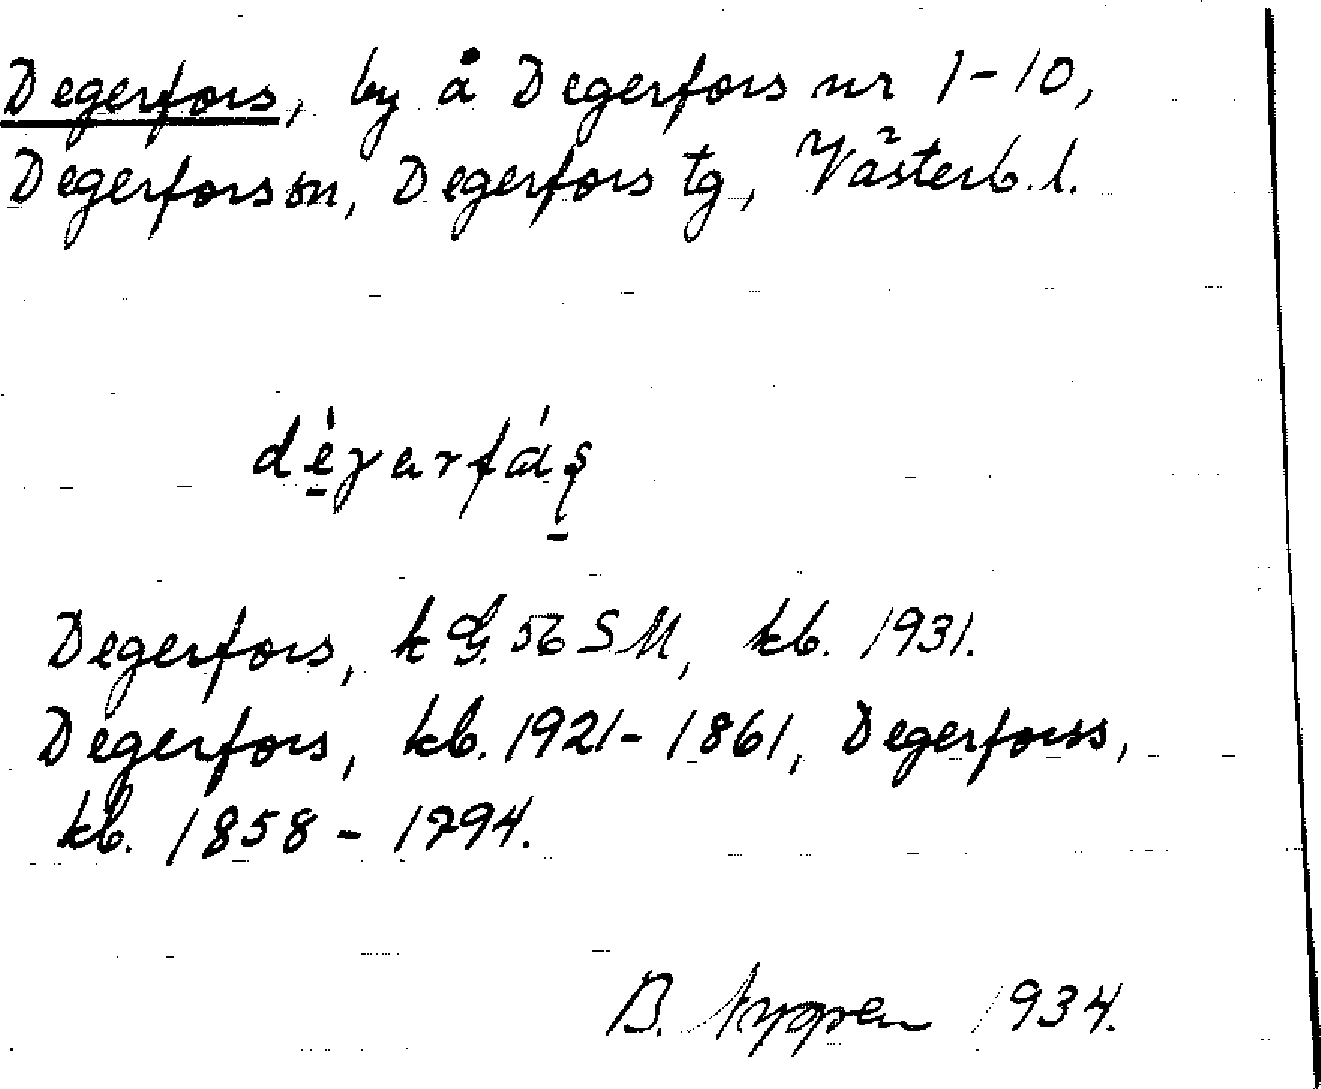 Degerfors, by å Degerfors nr 1-10,
Degerfors sn, Degerfors tg, Västerb. l.
Degerfors, k G. 56 SM, kb. 1931.
Degerfors, kb. 1921-1861, Degerforss,
kb. 1858-1794.
B. 1934.